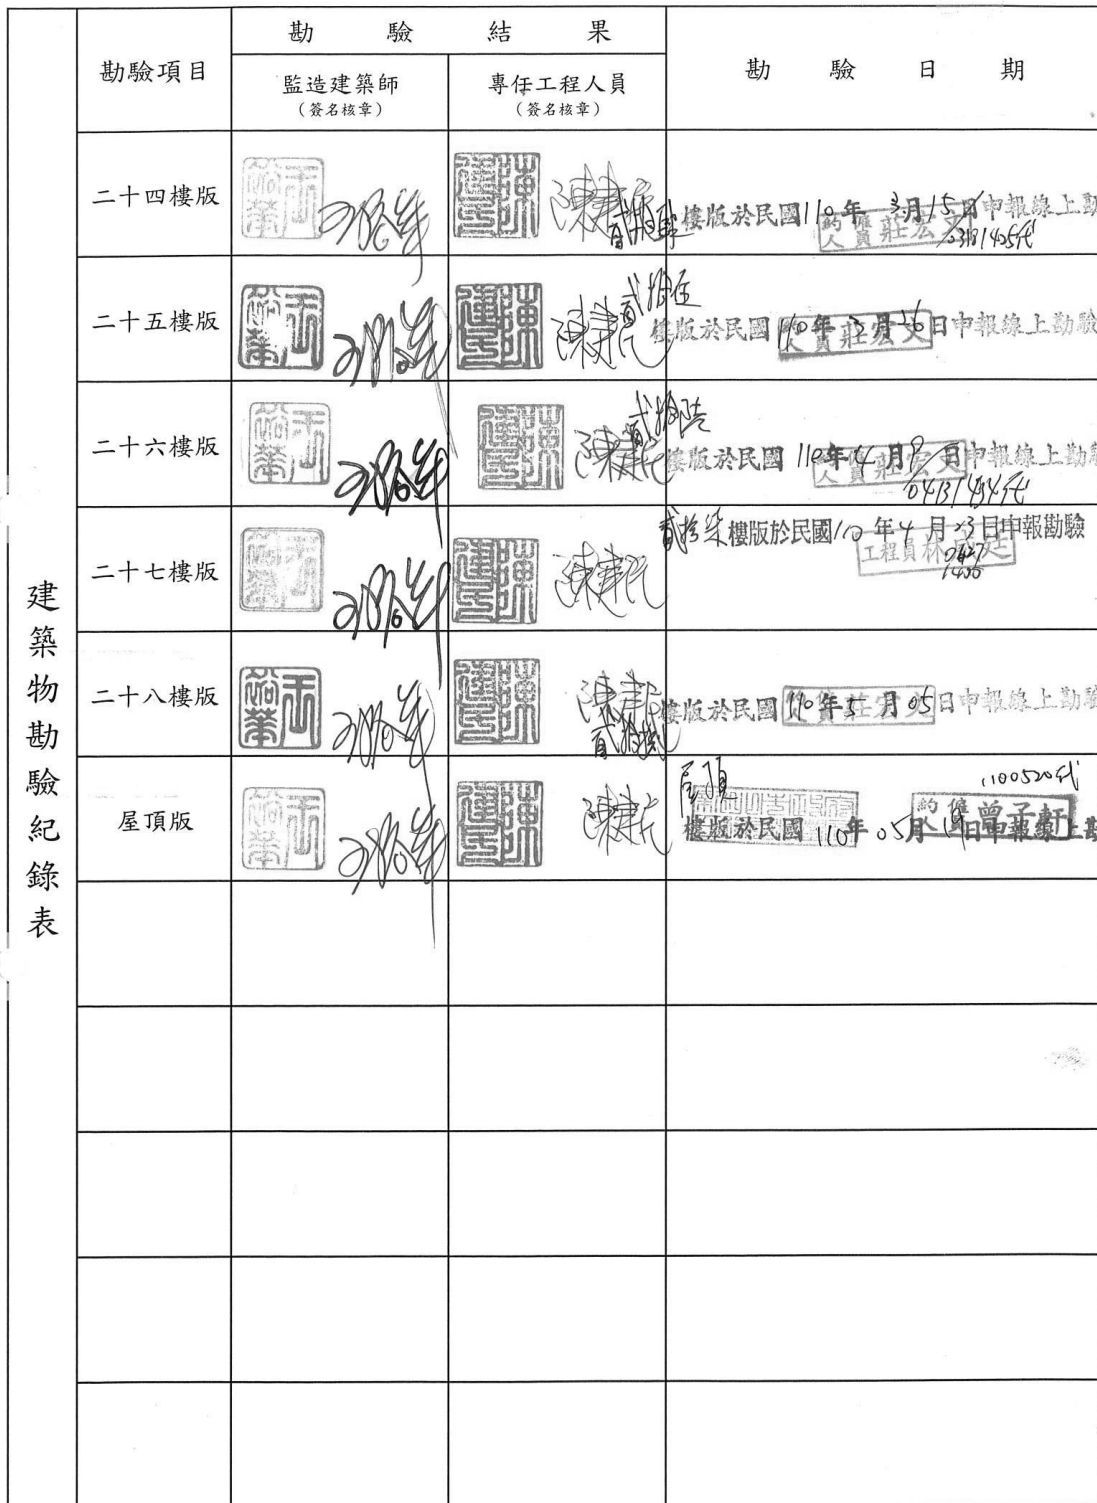 建築物勘驗紀錄表
勘驗項目
勘驗結果
監造建築師
(簽名核章)
專任工程人員
(簽名核章)
勘驗日期
二十四樓版
樓版於民國110年3月15日申報線上勘
約僱人員莊宏文
二十五樓版
貳拾伍
樓版於民國110年3月26日申報線上勘驗
人員莊宏文
二十六樓版
貳拾陸
樓版於民國110年4月9日申報線上勘
人員莊宏文
二十七樓版
貳拾柒樓版於民國110年4月23日申報勘驗
工程員林
0427
1400
二十八樓版
貳拾捌
樓版於民國110年5月05日申報線上勘
屋頂版
屋頂
1100520代
樓版於民國110年05月19日申報線上勘
約僱人員曾子軒